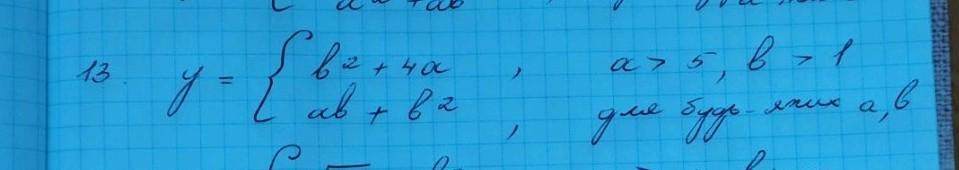 13. y = { b² + 4a , a > 5, b > 1
ab + b² , для будь-яких a, b